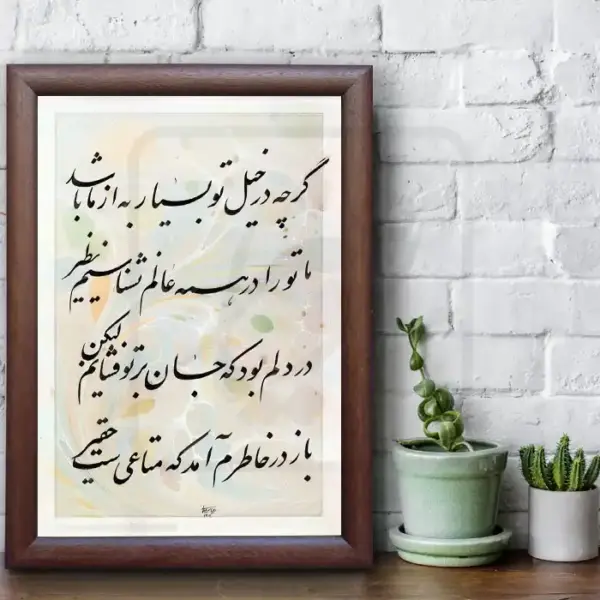 گرچه در خیل تو بسیار به از ما باشد
ما تو را در همه عالم نشناسیم نظیر
در دلم بود که جان بر تو فشانم لیکن
باز در خاطرم آمد که متاعی ست حقیر